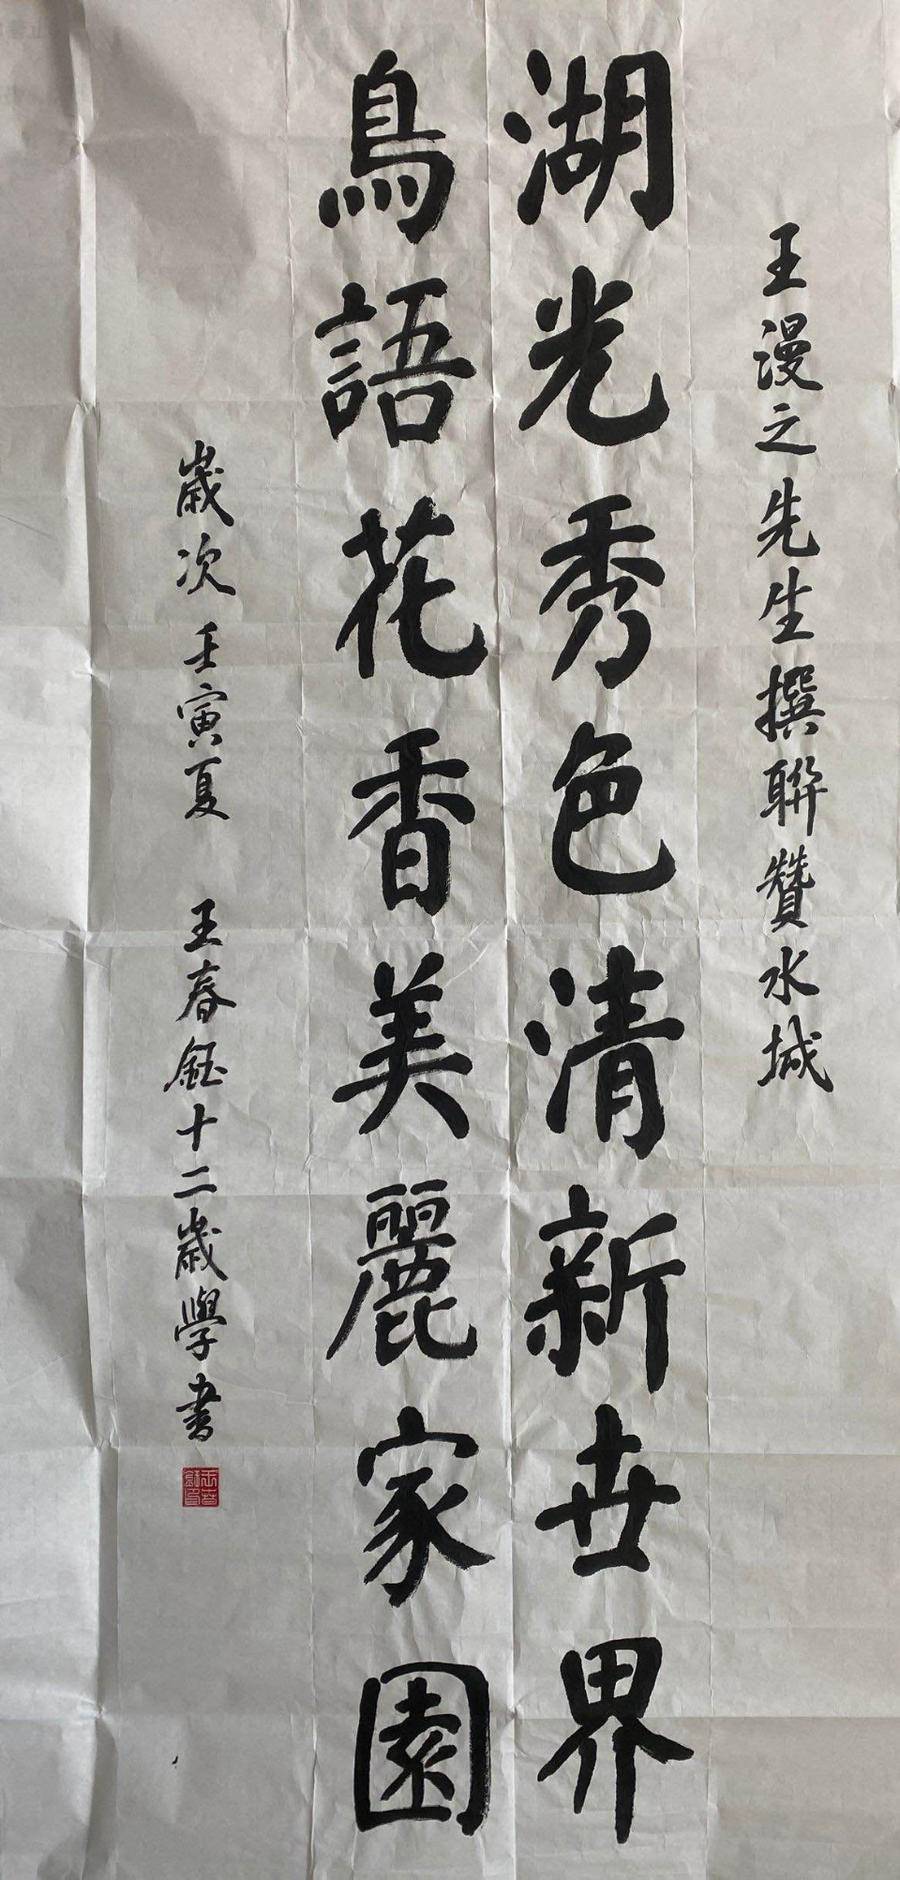 王漫之先生撰聯贊水城
湖光秀色清新世界
鳥語花香美麗家園
歲次壬寅夏 王春鈺十二歲學書